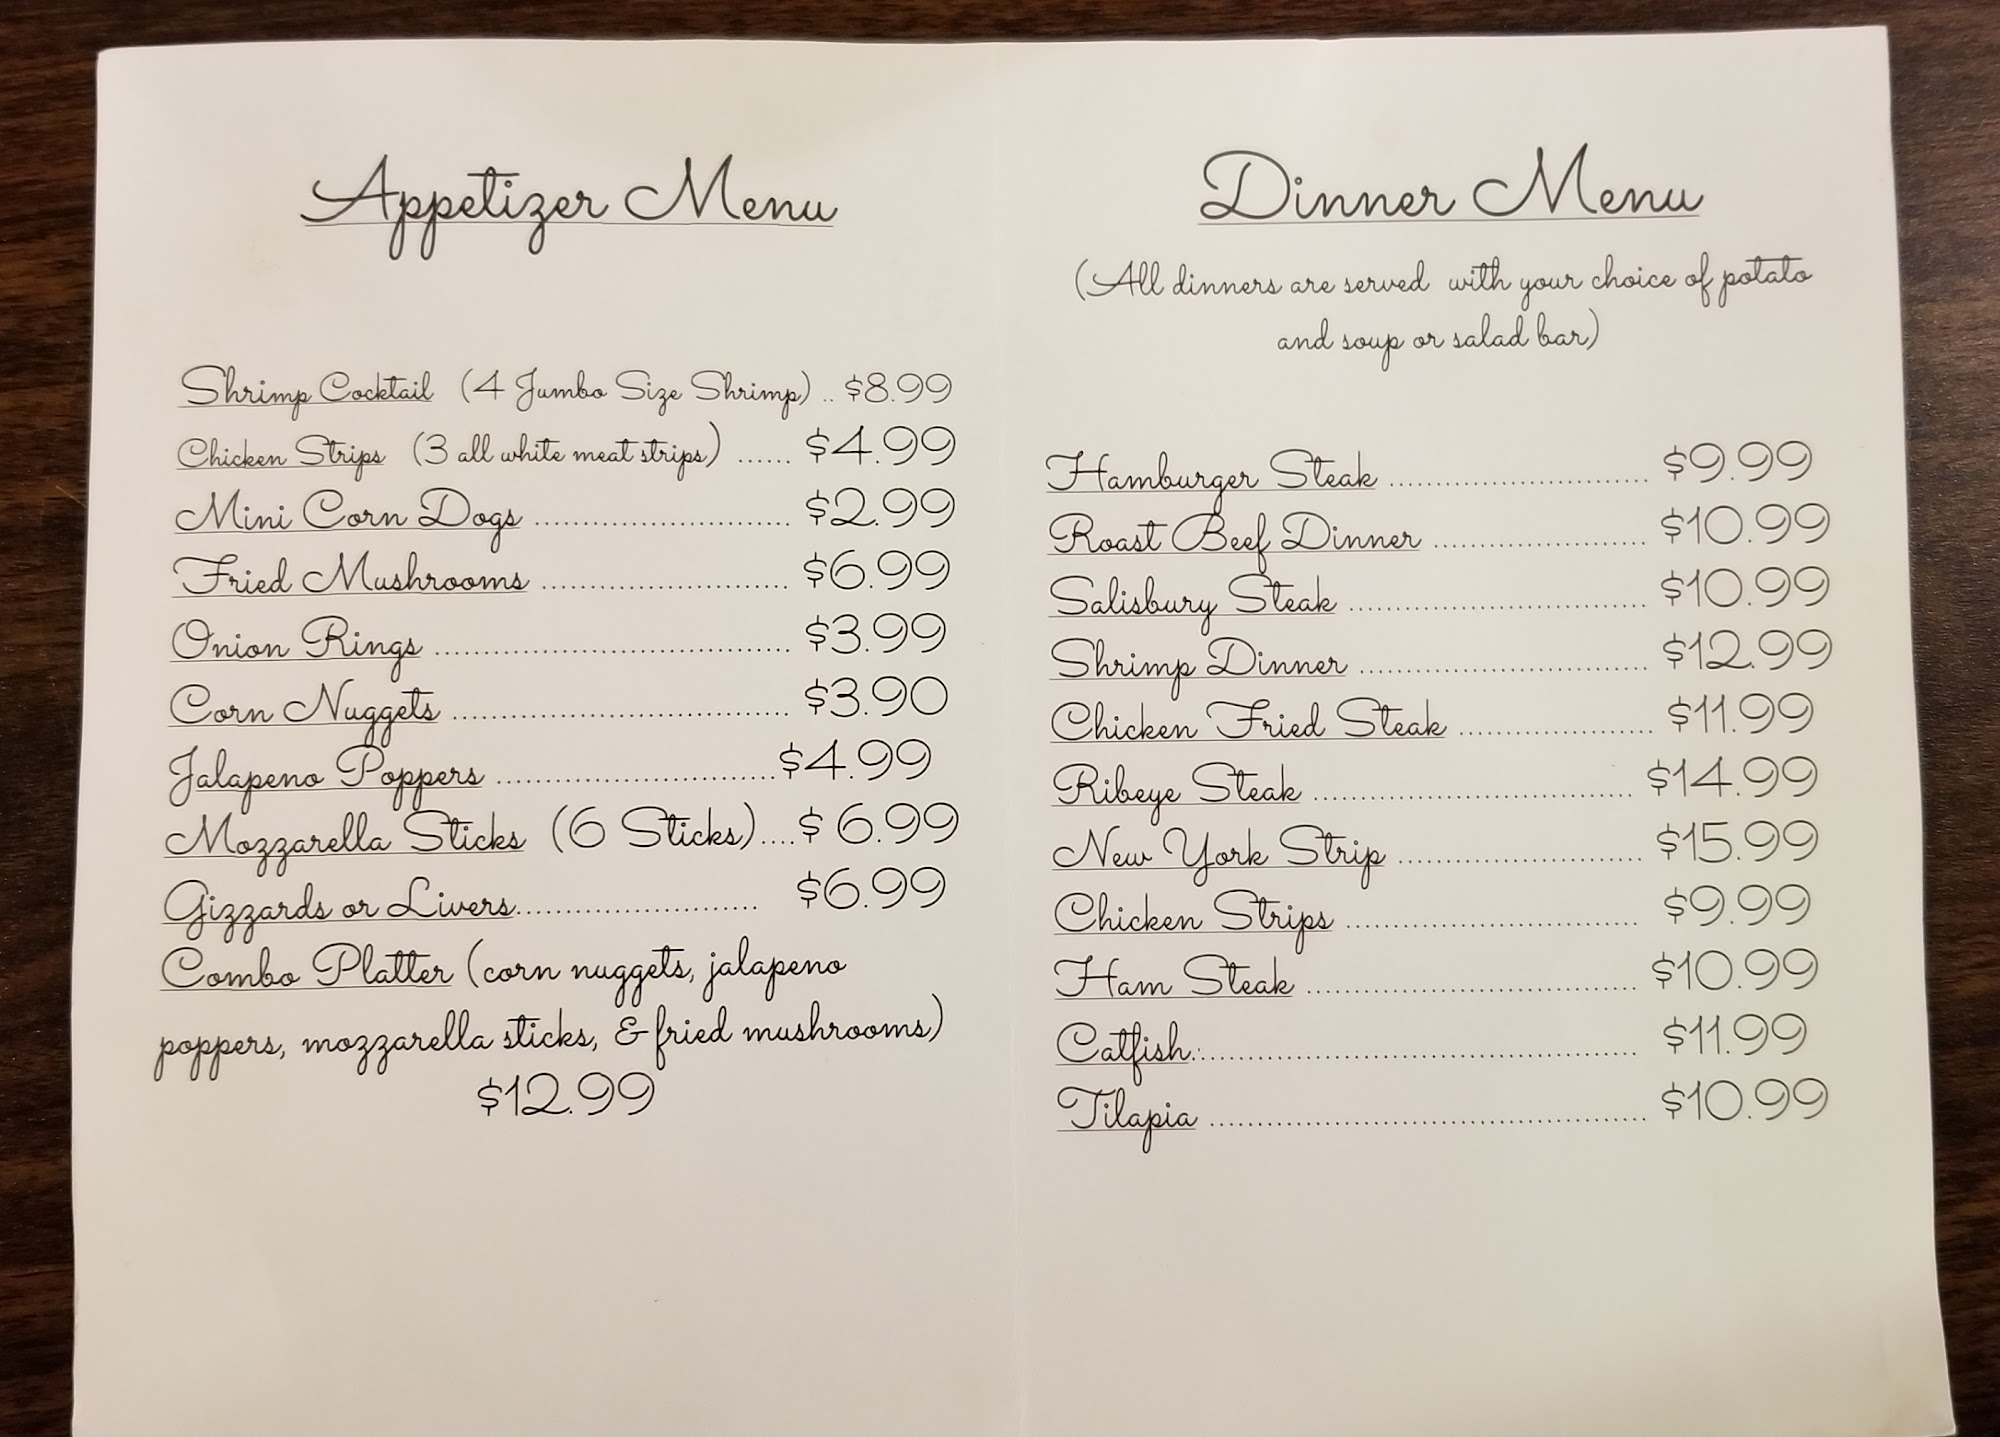 Appetizer Menu
Shrimp Cocktail (4 Jumbo Size Shrimp) .. $8.99
Chicken Strips (3 all white meat strips) ...... $4.99
Mini Corn Dogs .......................... $2.99
Fried Mushrooms ......................... $6.99
Onion Rings .................................... $3.99
Corn Nuggets .................................. $3.90
Jalapeno Poppers ............................$4.99
Mozzarella Sticks (6 Sticks)....$ 6.99
Gizzards or Livers......................... $6.99
Combo Platter (corn nuggets, jalapeno
poppers, mozzarella sticks, & fried mushrooms)
$12.99
Dinner Menu
(All dinners are served with your choice of potato
and soup or salad bar)
Hamburger Steak ........................... $9.99
Roast Beef Dinner ...................... $10.99
Salisbury Steak .............................. $10.99
Shrimp Dinner ............................. $12.99
Chicken Fried Steak .................... $11.99
Ribeye Steak ................................ $14.99
New York Strip ......................... $15.99
Chicken Strips .............................. $9.99
Ham Steak ................................. $10.99
Catfish.:........................................... $11.99
Tilapia ............................................ $10.99